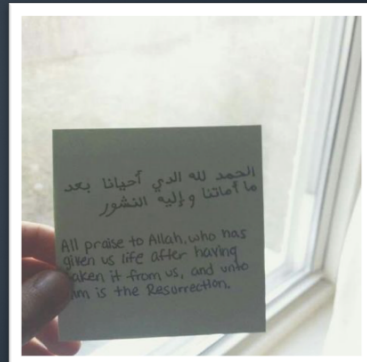 الحمد لله الدي أحيانا بعد
ما أماتنا وإليه النشور
All praise to Allah, who has
given us life after having
taken it from us, and unto
Him is the Resurrection.